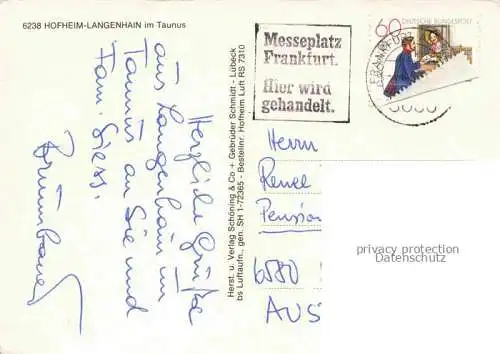 6238 HOFHEIM-LANGENHAIN im Taunus
Herzliche Grüße
aus Langenhain im
Taunus an Sie und
Fam. Giess.
Herst. u. Verlag Schöning & Co + Gebrüder Schmidt - Lübeck
bs Luftaufn., gen. SH 1-72365 - Bestellnr. Hofheim Luft RS 7310
Messeplatz
Frankfurt.
Hier wird
gehandelt.
60 DEUTSCHE BUNDESPOST
Herrn
Renee
Pension
6580
AUS
privacy protection
Datenschutz